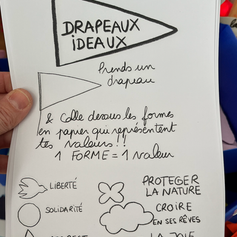 DRAPEAUX
IDEAUX
Prends un
drapeau
& Colle dessus les formes
en papier qui représentent
tes valeurs!!
1 FORME = 1 valeur
LIBERTÉ
PROTEGER
LA NATURE
SOLIDARITÉ
CROIRE
EN SES RÊVES
LA JOIE